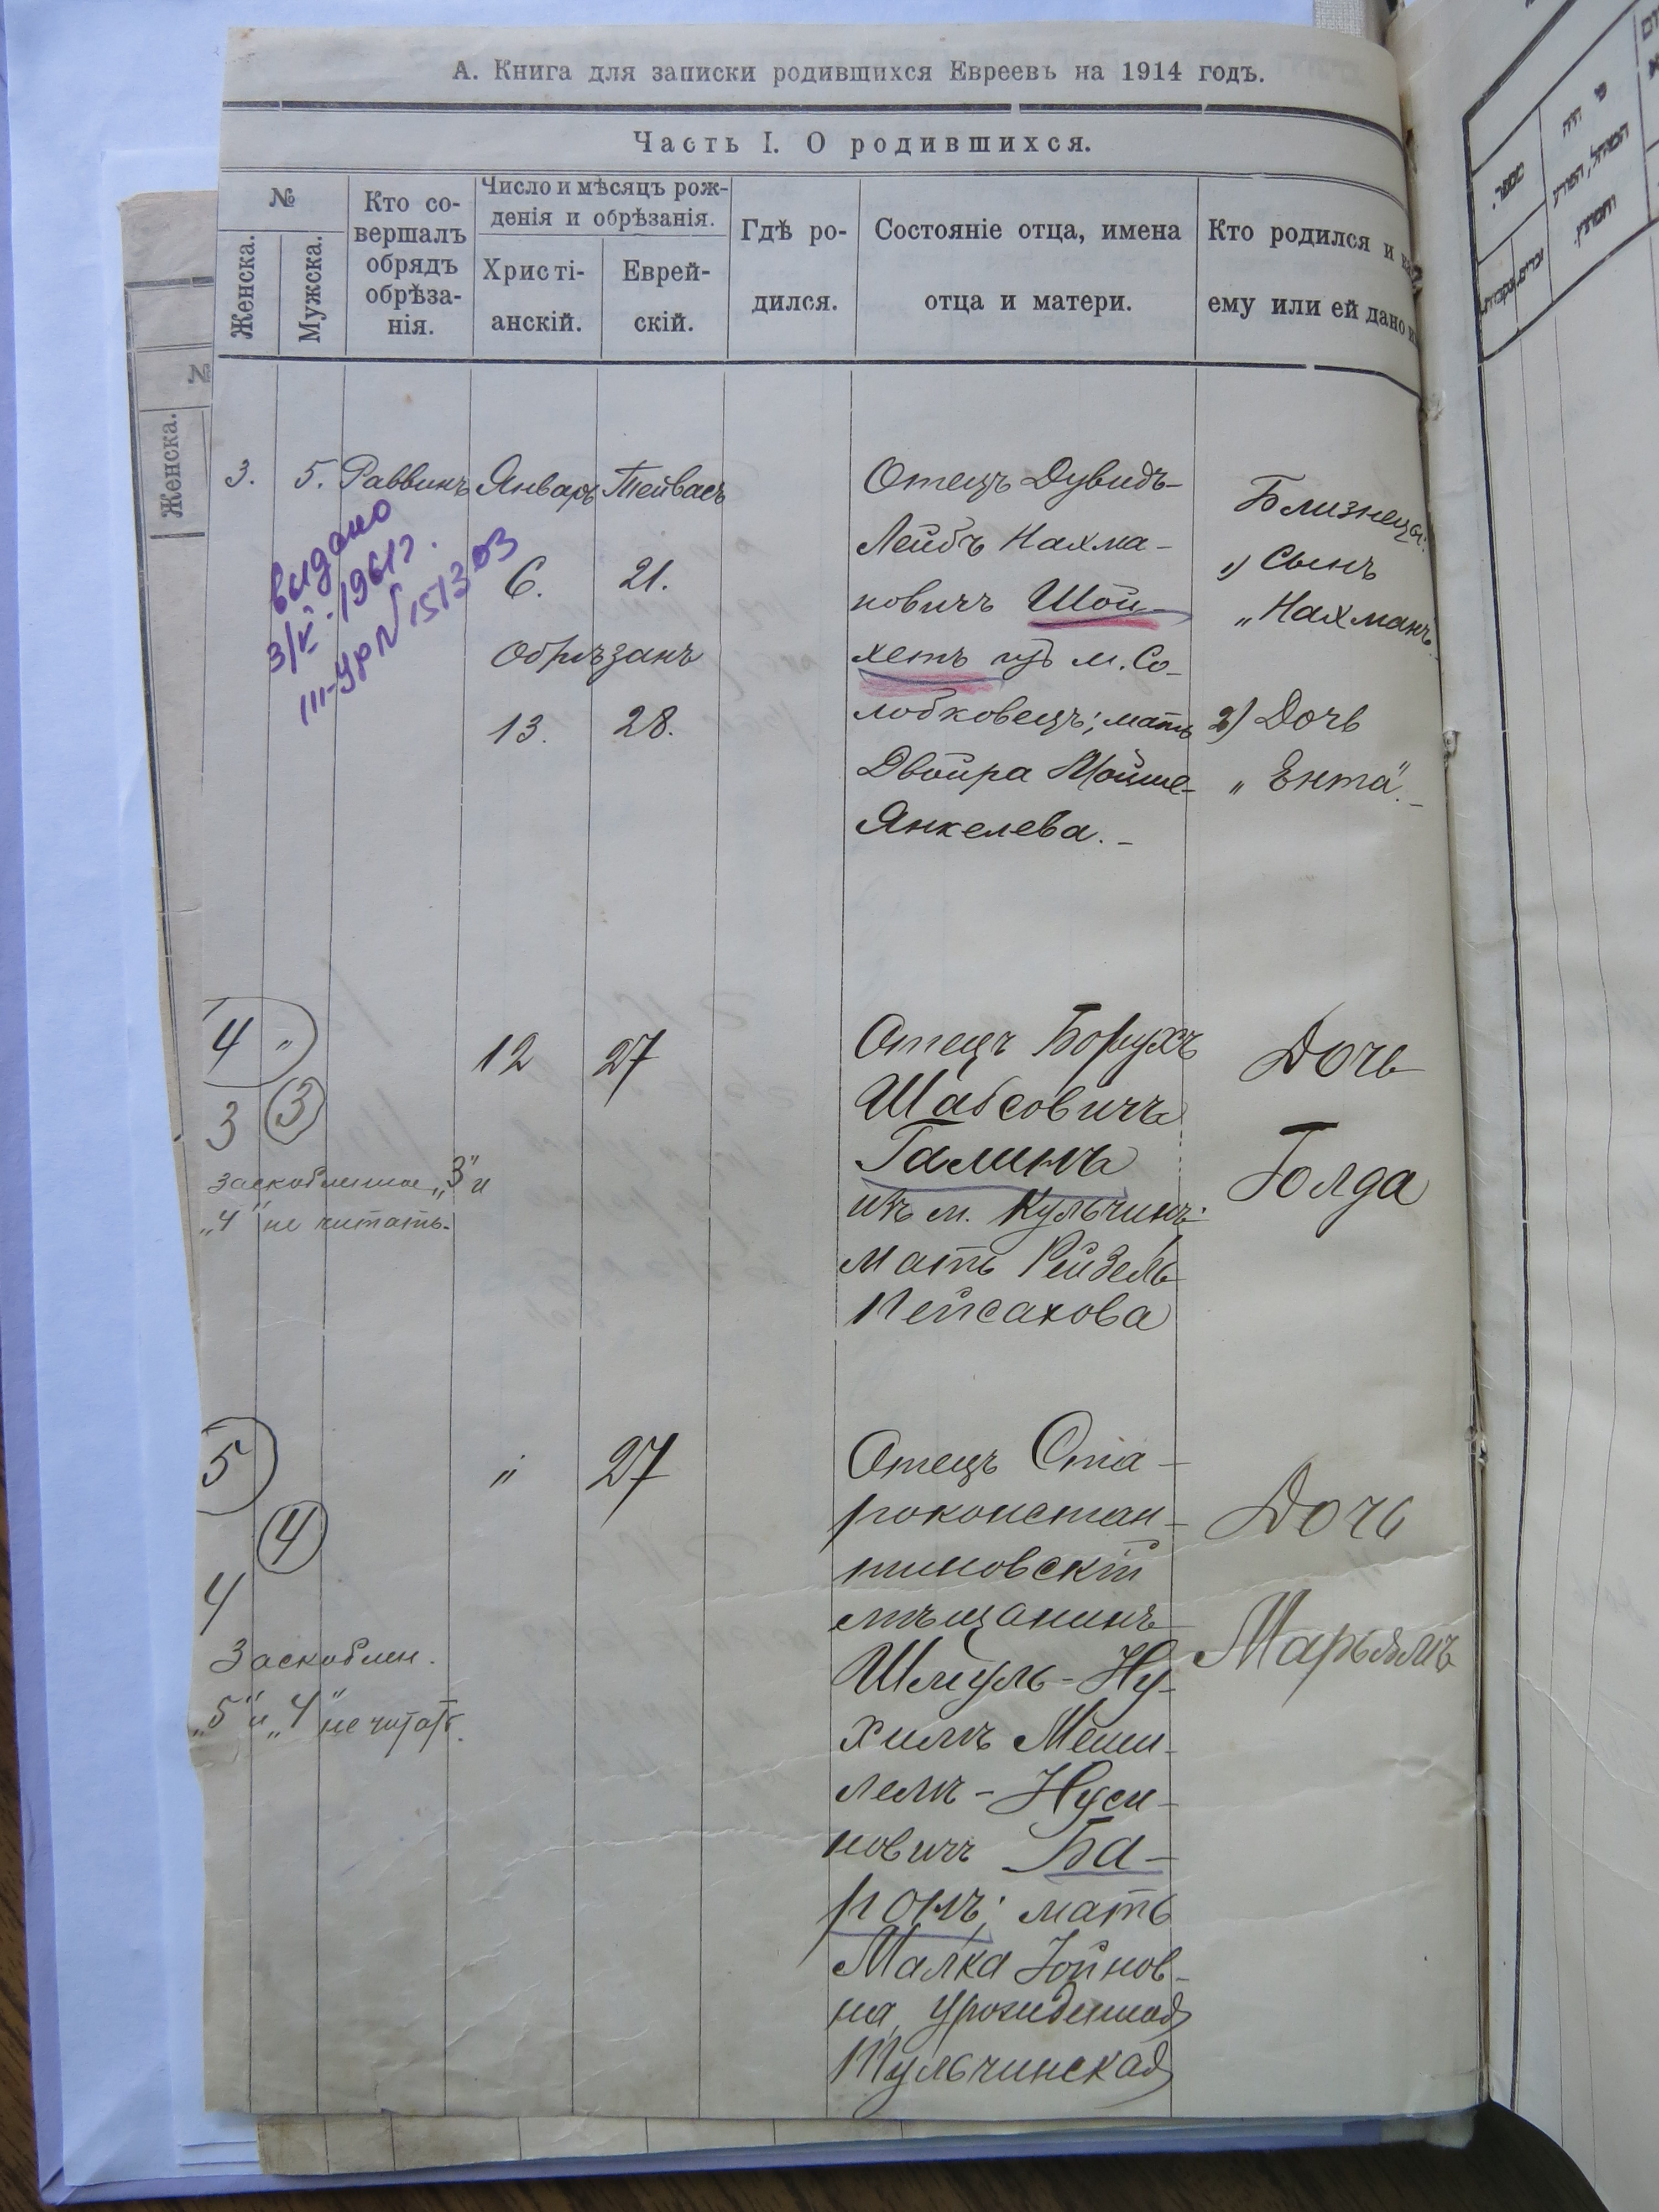 А. Книга для записки родившихся Евреевъ на 1914 годъ.
Часть I. О родившихся.
№
Женска.
Мужска.
Кто со-
вершалъ
обрядъ
обрѣза-
нія.
Число и мѣсяцъ рож-
денія и обрѣзанія.
Христі-
анскій.
Еврей-
скій.
Гдѣ ро-
дился.
Состояніе отца, имена
отца и матери.
Кто родился и
ему или ей дано
№
Женска.
3. 5. Раввинъ Январь Тейвасъ
6. 21.
Обрѣзанъ
13. 28.
выдано
3/V-1961г.
III-УР № 151303
Отецъ Дувидъ-
Лейбъ Нахма-
новичъ Шой-
хетъ изъ м. Со-
лобковецъ; мать
Двойра Мойше-
Янкелева.-
Близнецы:
1) Сынъ
„Нахманъ"
2) Дочь
„Ента".-
4 „ 12 27
3 3
Заскобленное „3" и
„4" не читать.
Отецъ Борухъ
Шабсовичъ
Галинъ
изъ м. Кульчинъ
мать Рейзель
Пейсахова
Дочь
Голда
5 „ 27
4
4
Заскоблен.
„5" и „4" не читать.
Отецъ Ста-
роконстан-
тиновскій
мѣщанинъ
Шмуль-Ну-
химъ Меши-
лемъ-Нуси-
новичъ Ба-
ронъ; мать
Малка Іойнов-
на, урожденная
Тульчинская
Дочь
Марьямъ
מספר.
נקבות.
זכרים.
מי היה
המוהל, הפורע
והמוצץ.